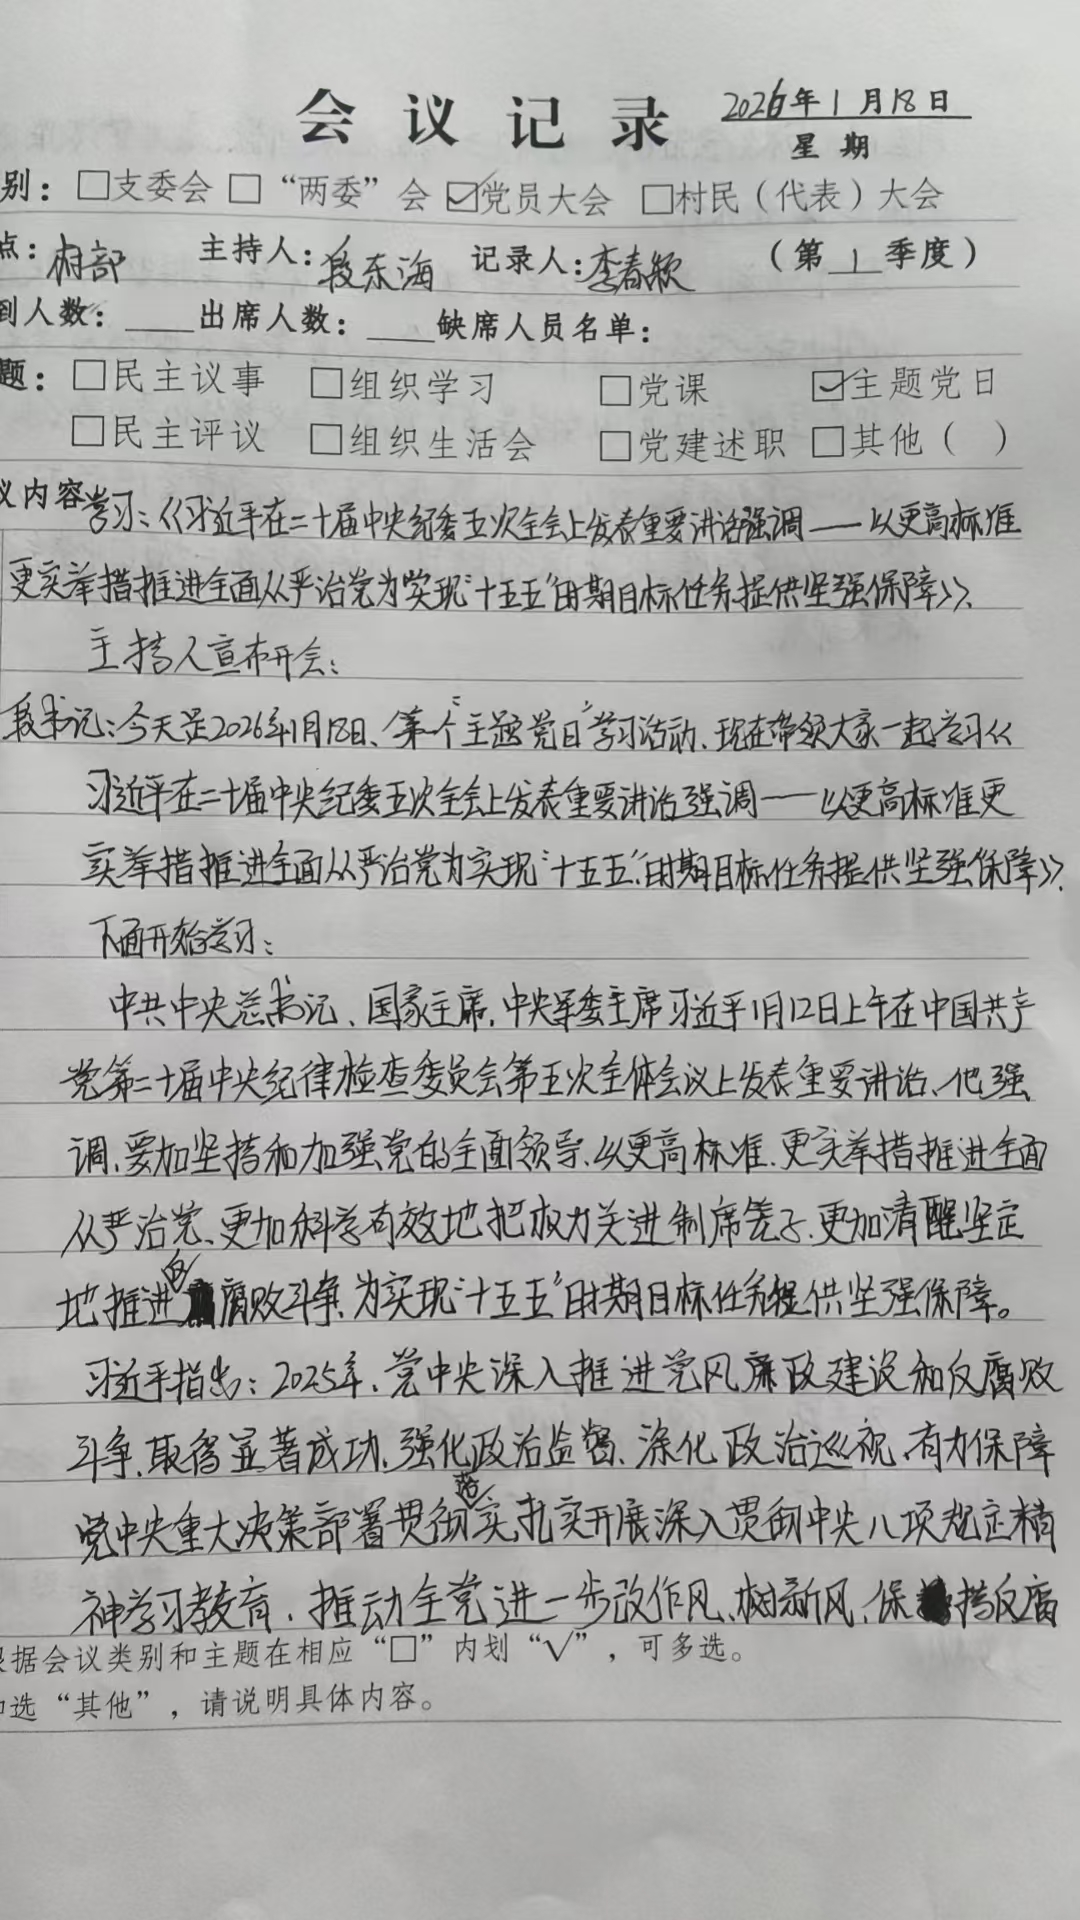 会议记录 2026年1月18日
星期
别：□支委会 □“两委”会 ☑党员大会 □村民（代表）大会
点：村部 主持人：段东海 记录人：李春颖 （第1季度）
到人数：____出席人数：____缺席人员名单：
题：□民主议事 □组织学习 □党课 ☑主题党日
□民主评议 □组织生活会 □党建述职 □其他（ ）
议内容 学习：《习近平在二十届中央纪委五次全会上发表重要讲话强调——以更高标准
更实举措推进全面从严治党为实现“十五五”时期目标任务提供坚强保障》、
主持人宣布开会：
段书记：今天是2026年1月18日、第一个“主题党日”学习活动、现在带领大家一起学习《
习近平在二十届中央纪委五次全会上发表重要讲话强调——以更高标准更
实举措推进全面从严治党为实现“十五五”时期目标任务提供坚强保障》.
下面开始学习：
中共中央总书记、国家主席，中央军委主席习近平1月12日上午在中国共产
党第二十届中央纪律检查委员会第五次全体会议上发表重要讲话、他强
调、要加坚持和加强党的全面领导、以更高标准、更实举措推进全面
从严治党、更加科学有效地把权力关进制度笼子、更加清醒坚定
地推进反腐败斗争、为实现“十五五”时期目标任务提供坚强保障。
习近平指出：2025年、党中央深入推进党风廉政建设和反腐败
斗争、取得显著成功、强化政治监督、深化政治巡视、有力保障
党中央重大决策部署贯彻落实、扎实开展深入贯彻中央八项规定精
神学习教育、推动全党进一步改作风、树新风、保持反腐
根据会议类别和主题在相应“□”内划“√”，可多选。
如选“其他”，请说明具体内容。